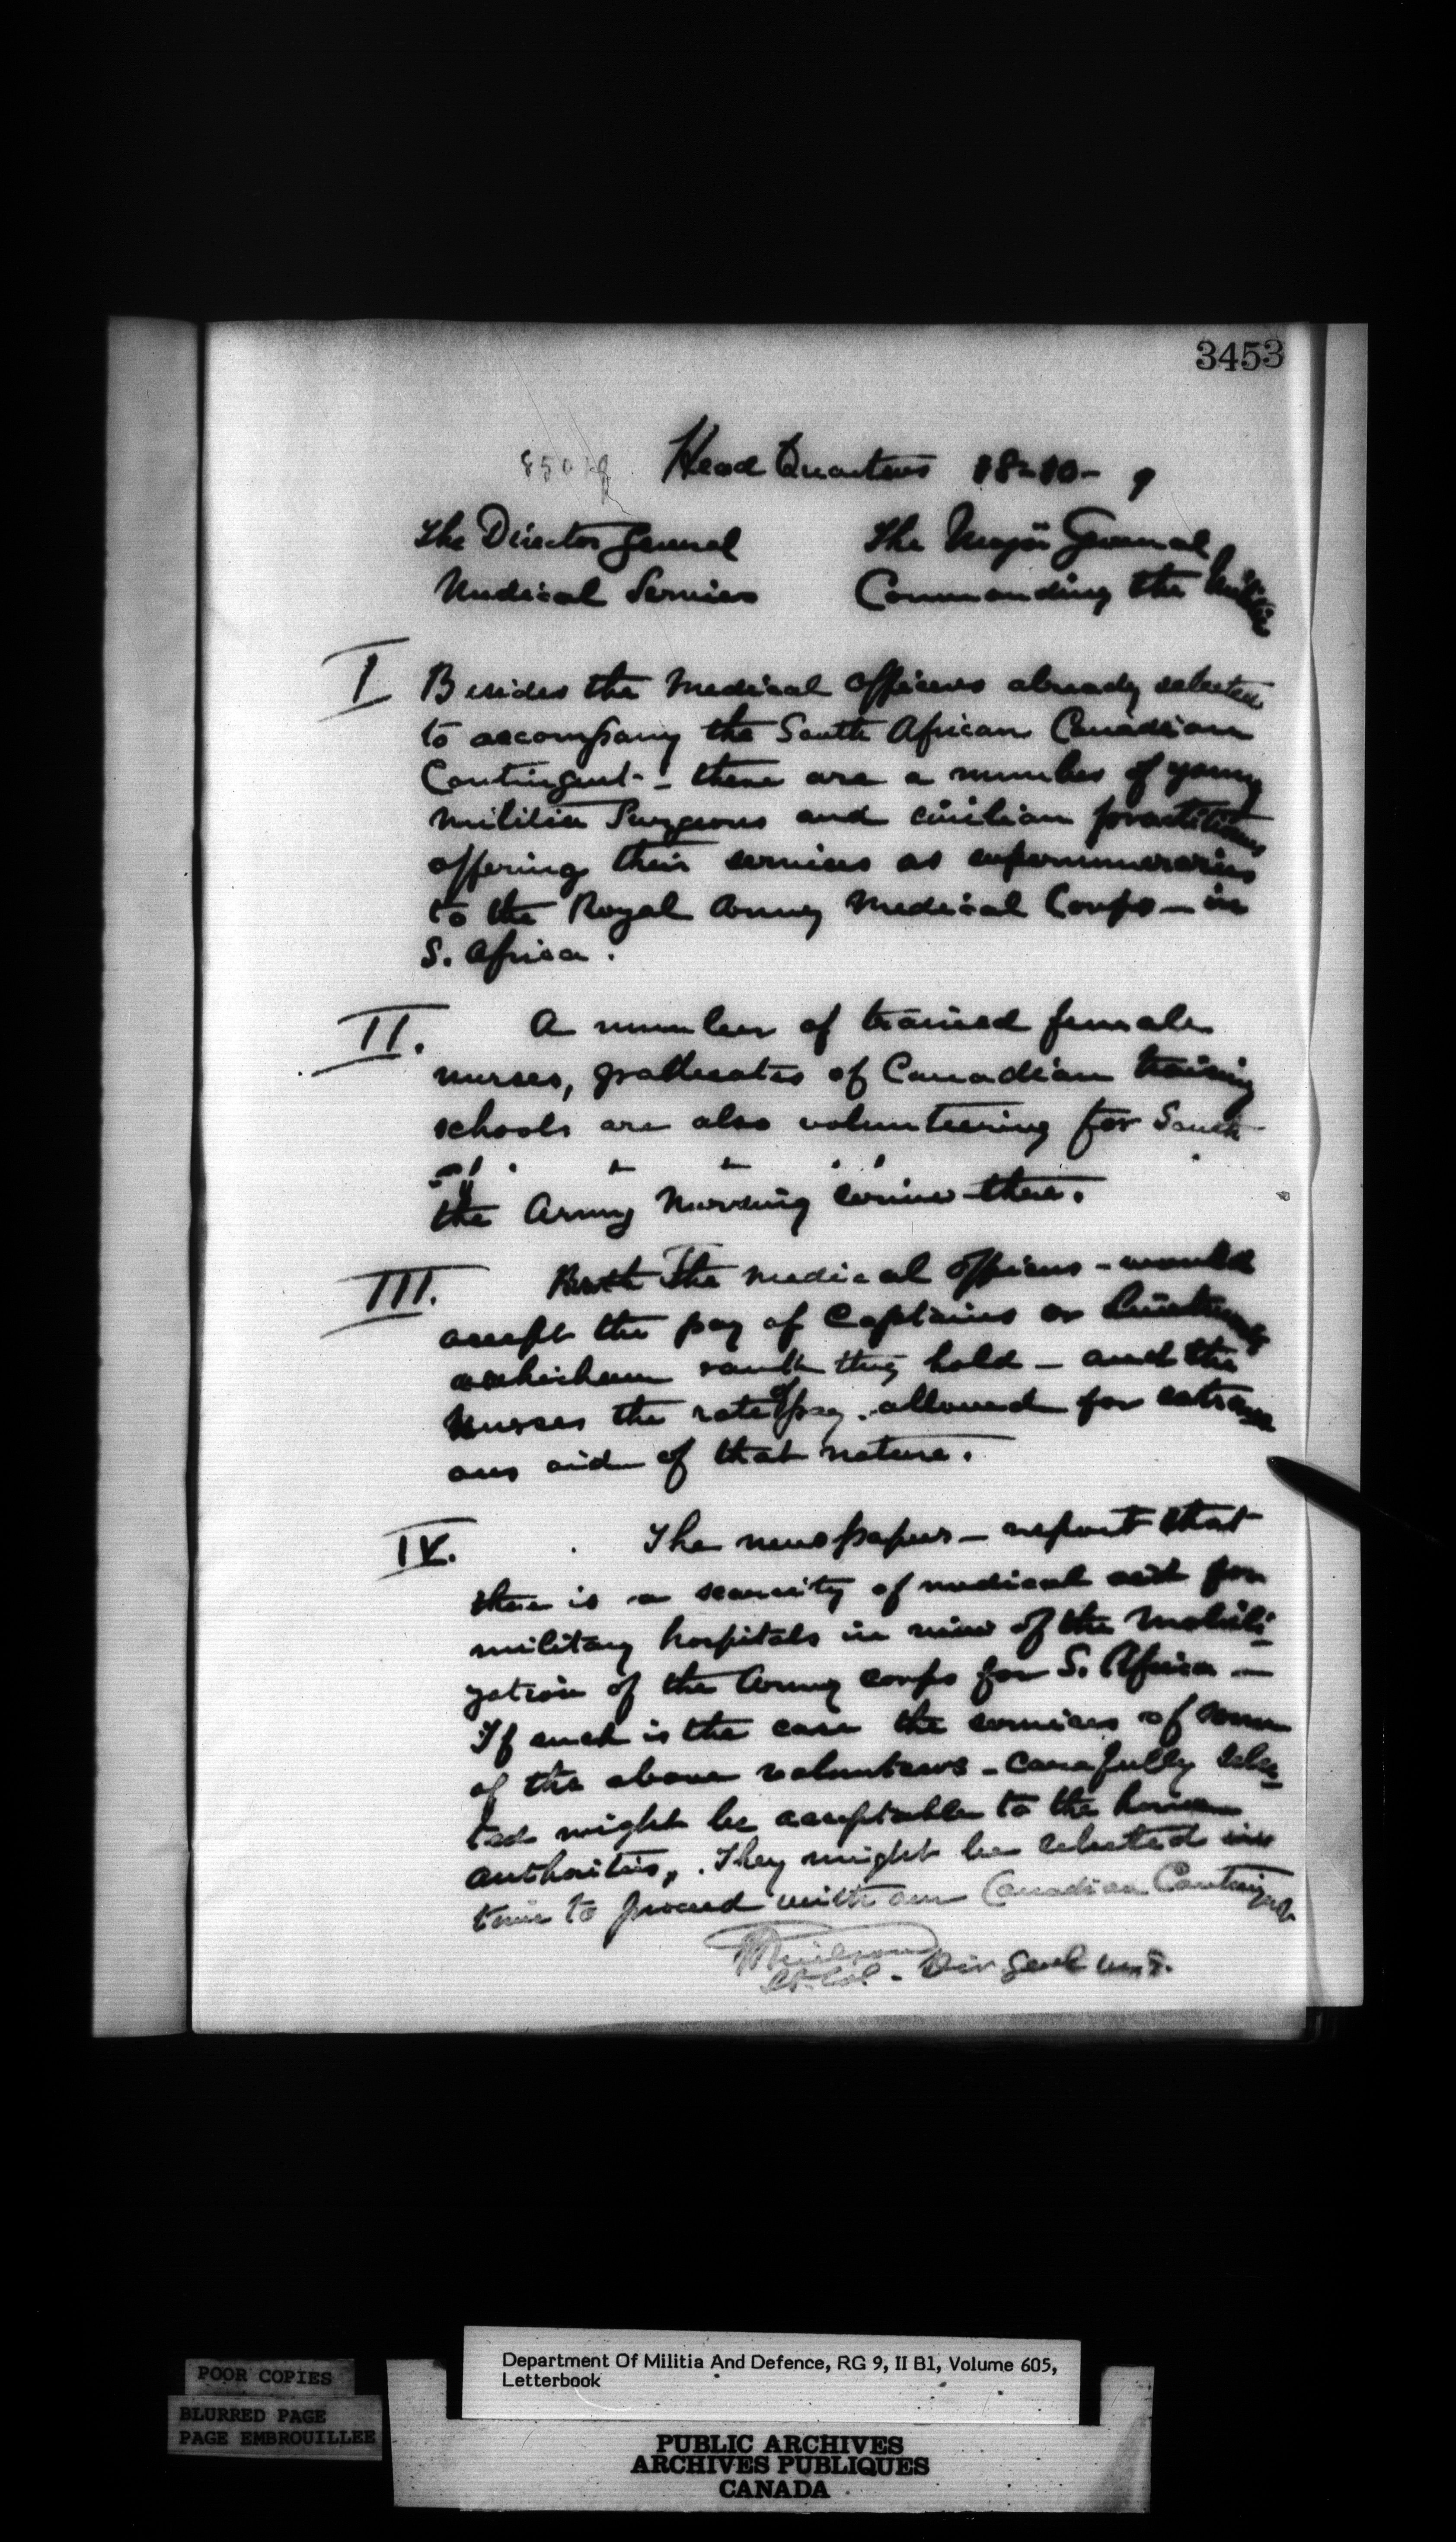 3453
Head Quarters 18-10- 9
The Director General The Major General
Medical Services Commanding the Militia
I Besides the Medical Officers already selected
to accompany the South African Canadian
Contingent - there are a number of young
Militia Surgeons and civilian practitioners
offering their services as supernumeraries
to the Royal Army Medical Corps - in
S. Africa.
II. A number of trained female
nurses, graduates of Canadian training
schools are also volunteering for South
the Army Nursing service there.
III. Both the medical officers - would
accept the pay of Captains or Lieutenants
whichever rank they hold - and the
Nurses the rate of pay allowed for extrane
ous aid of that nature.
IV. The newspapers - report that
there is a scarcity of medical aid for
military hospitals in view of the mobili-
zation of the Army corps for S. Africa -
If such is the case the services of some
of the above volunteers - carefully selec-
ted might be acceptable to the home
authorities, . They might be selected in
time to proceed with our Canadian Contingent
Lt. Col. - Dir Genl M.S.
POOR COPIES
BLURRED PAGE
PAGE EMBROUILLEE
Department Of Militia And Defence, RG 9, II B1, Volume 605,
Letterbook
PUBLIC ARCHIVES
ARCHIVES PUBLIQUES
CANADA